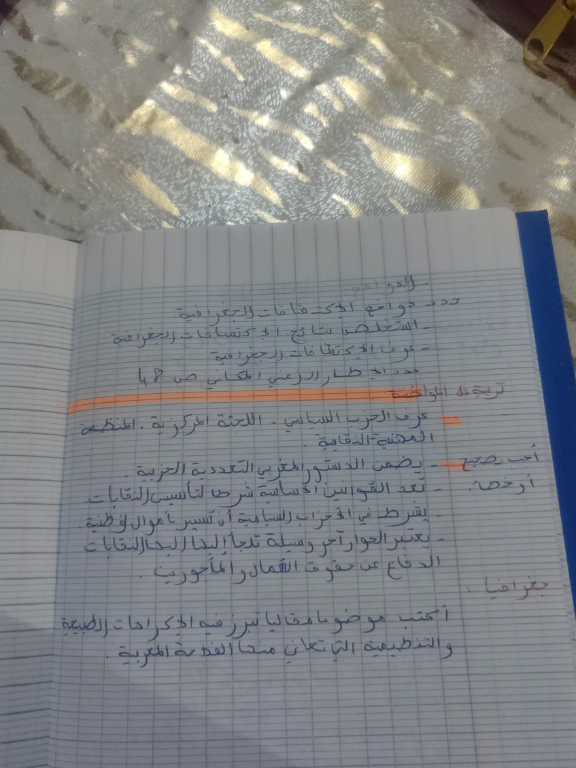 - الدوافع
حدد دوافع الاكتشافات الجغرافية
- استخلص نتائج الاكتشافات الجغرافية
- عرف الاكتشافات الجغرافية
حدد الإطار الزمني المكاني ص 48
تربية على المواطنة
- عرف الحزب السياسي - اللجنة المركزية - المنظمة
المهنية النقابية .
أجب بصحيح - يضمن الدستور المغربي التعددية الحزبية .
أو خطأ: - تعد القوانين الأساسية شرطا لتأسيس النقابات
- يشترط في الأحزاب السياسية أن تسير بأموال وطنية .
- يعتبر الحوار آخر وسيلة تلجأ إليها النقابات
الدفاع عن حقوق العمال والمأجورين .
جغرافيا :
أكتب موضوعا مقاليا تبرز فيه الإكراهات الطبيعية
والتنظيمية التي تعاني منها الفلاحة المغربية .